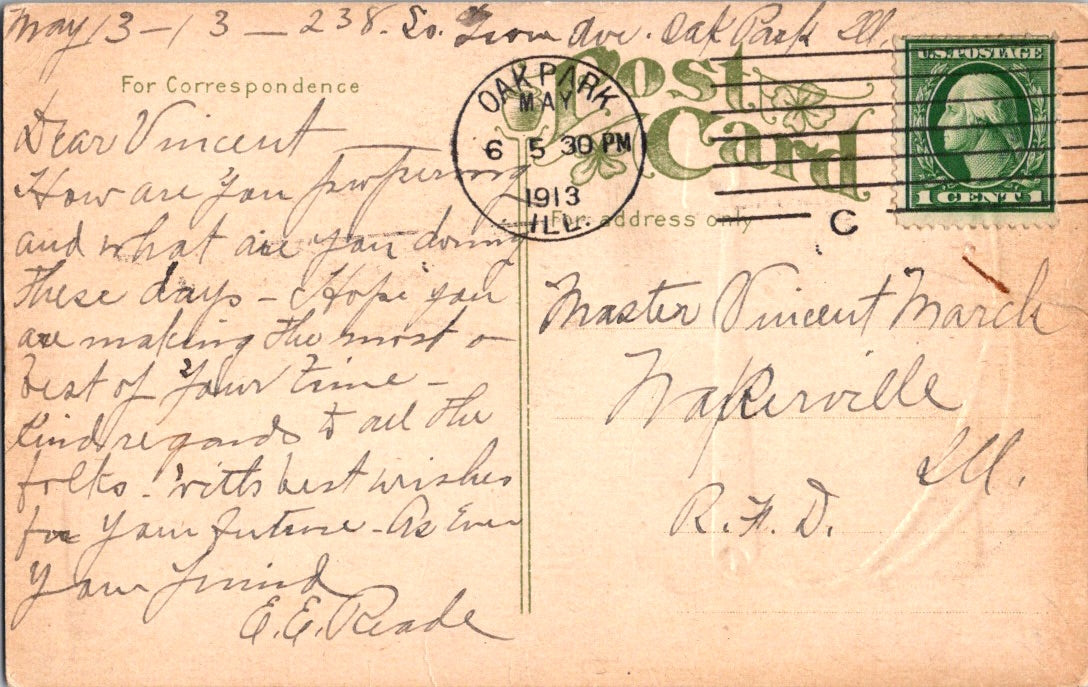 May 13 - 13 - 238. So. Ave. Oak Park Ill.
For Correspondence
Post
Card
OAK PARK
MAY
6 5 30 PM
1913
ILL.
For address only
C
U.S. POSTAGE
1 CENT 1
Dear Vincent
How are you prospering
and what are you doing
these days - Hope you
are making the most or
best of your time -
Kind regards to all the
folks - with best wishes
for your future - As Ever
Your friend
E. E. Reade
Master Vincent March
Ill.
R. F. D.